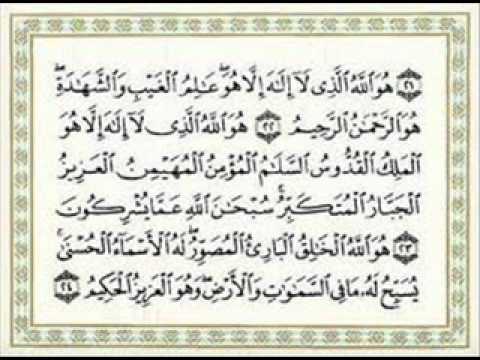 ٢١ هُوَ اللَّهُ الَّذِى لَآ إِلَٰهَ إِلَّا هُوَ ۖ عَٰلِمُ الْغَيْبِ وَالشَّهَٰدَةِ ۖ
هُوَ الرَّحْمَٰنُ الرَّحِيمُ ٢٢ هُوَ اللَّهُ الَّذِى لَآ إِلَٰهَ إِلَّا هُوَ
الْمَلِكُ الْقُدُّوسُ السَّلَٰمُ الْمُؤْمِنُ الْمُهَيْمِنُ الْعَزِيزُ
الْجَبَّارُ الْمُتَكَبِّرُ ۚ سُبْحَٰنَ اللَّهِ عَمَّا يُشْرِكُونَ
٢٣ هُوَ اللَّهُ الْخَٰلِقُ الْبَارِئُ الْمُصَوِّرُ ۖ لَهُ الْأَسْمَآءُ الْحُسْنَىٰ ۚ
يُسَبِّحُ لَهُۥ مَا فِى السَّمَٰوَٰتِ وَالْأَرْضِ ۖ وَهُوَ الْعَزِيزُ الْحَكِيمُ ٢٤